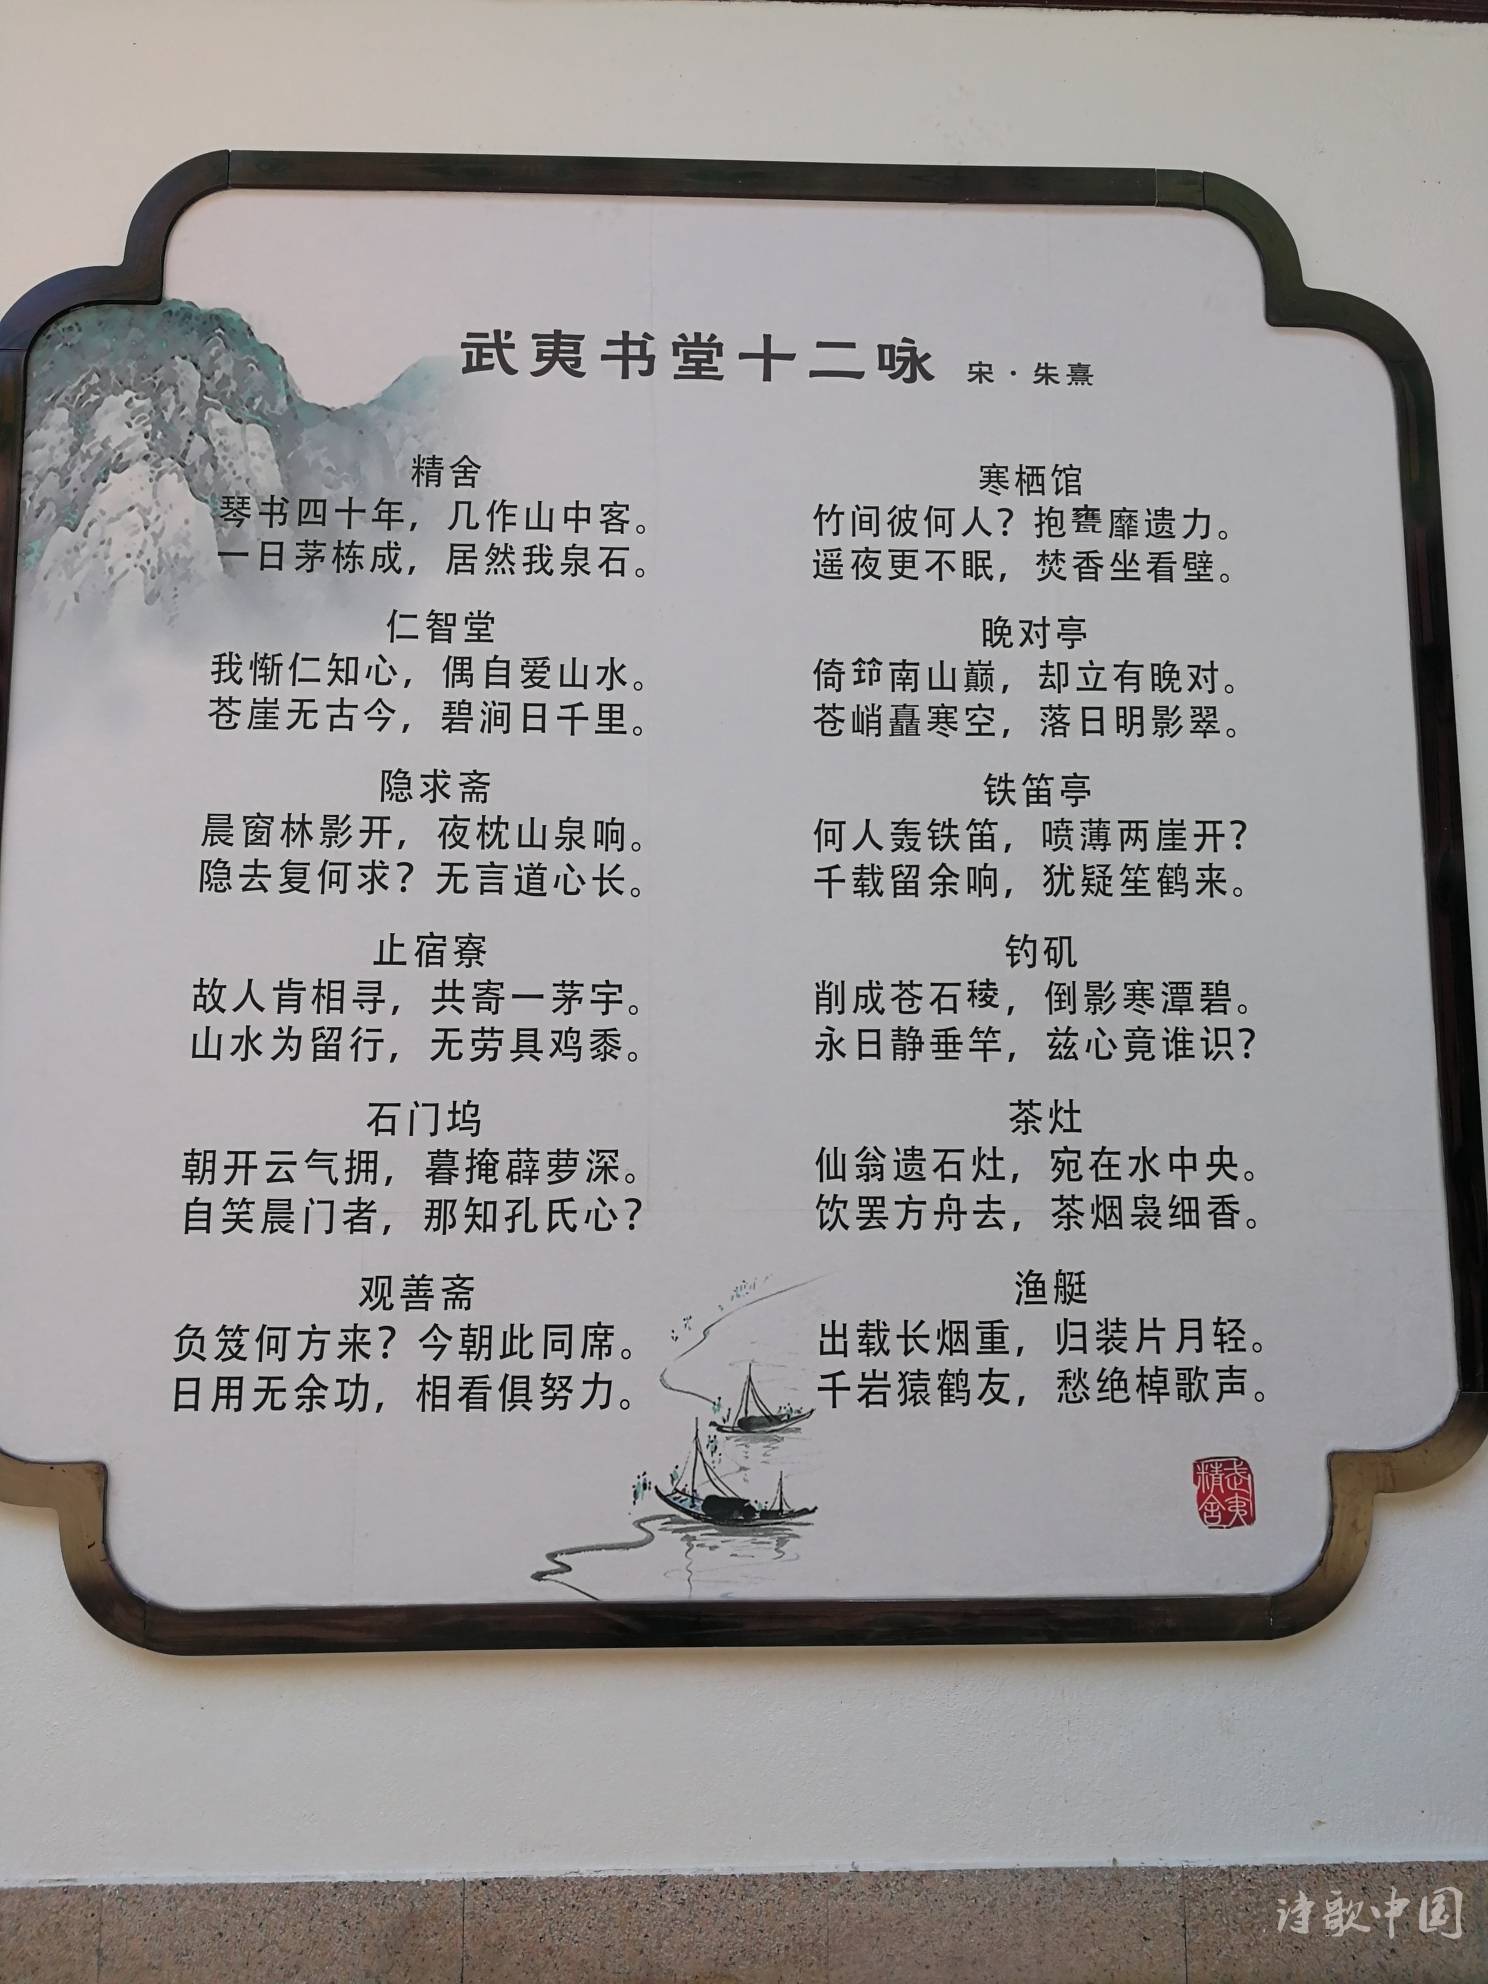 武夷书堂十二咏 宋·朱熹
精舍
琴书四十年，几作山中客。
一日茅栋成，居然我泉石。
仁智堂
我惭仁知心，偶自爱山水。
苍崖无古今，碧涧日千里。
隐求斋
晨窗林影开，夜枕山泉响。
隐去复何求？无言道心长。
止宿寮
故人肯相寻，共寄一茅宇。
山水为留行，无劳具鸡黍。
石门坞
朝开云气拥，暮掩薜萝深。
自笑晨门者，那知孔氏心？
观善斋
负笈何方来？今朝此同席。
日用无余功，相看俱努力。
寒栖馆
竹间彼何人？抱甕靡遗力。
遥夜更不眠，焚香坐看壁。
晚对亭
倚筇南山巅，却立有晚对。
苍峭矗寒空，落日明影翠。
铁笛亭
何人轰铁笛，喷薄两崖开？
千载留余响，犹疑笙鹤来。
钓矶
削成苍石稜，倒影寒潭碧。
永日静垂竿，兹心竟谁识？
茶灶
仙翁遗石灶，宛在水中央。
饮罢方舟去，茶烟袅细香。
渔艇
出载长烟重，归装片月轻。
千岩猿鹤友，愁绝棹歌声。
武夷精舍
诗歌中国